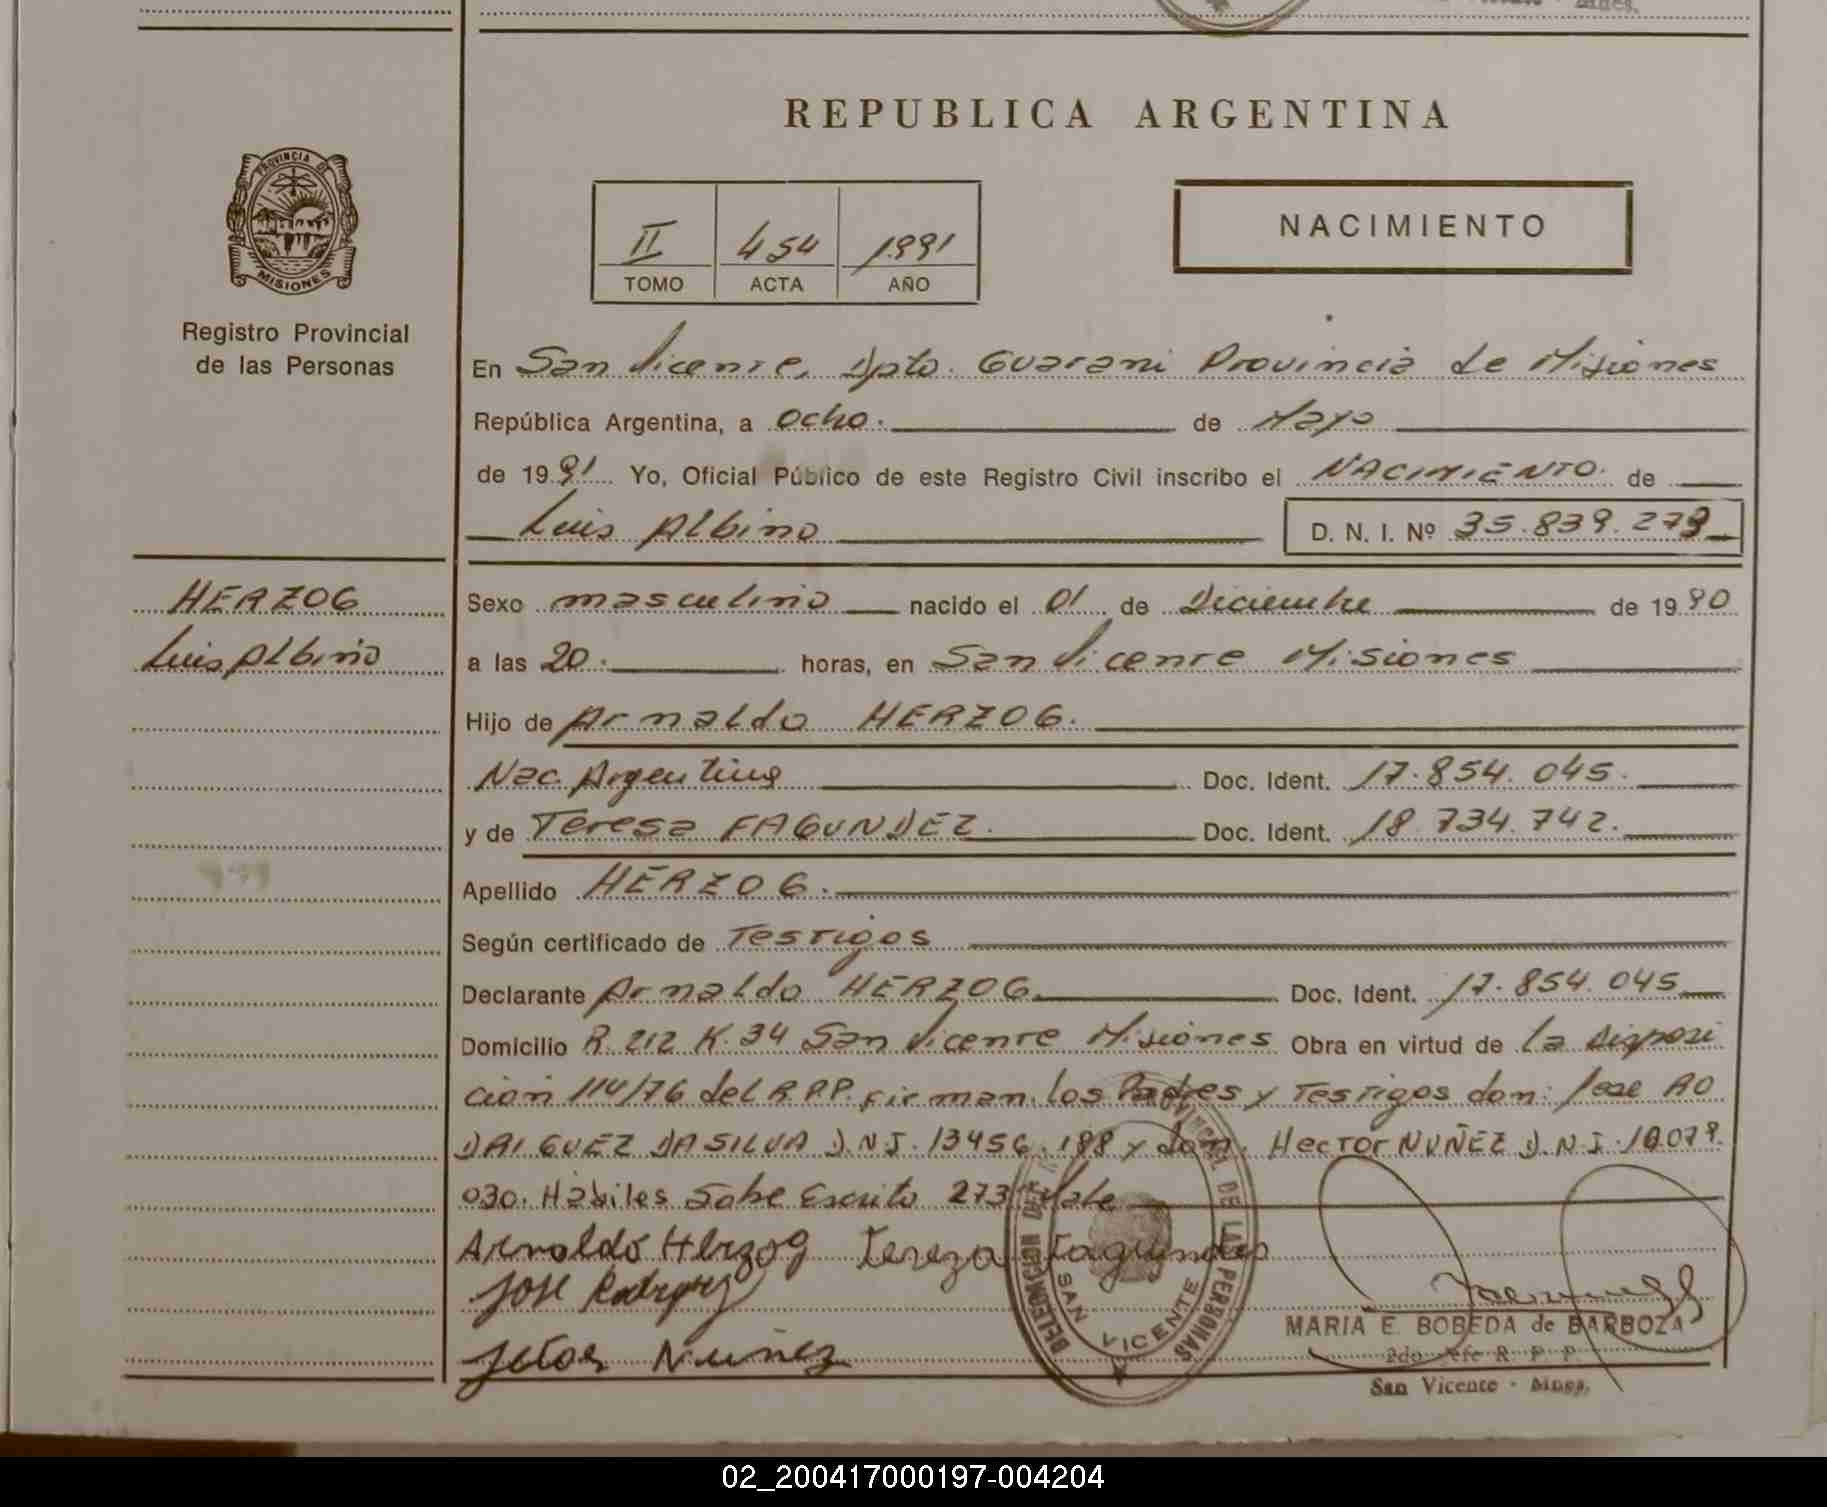 REPUBLICA ARGENTINA
PROVINCIA DE
MISIONES
Registro Provincial
de las Personas
II 454 1991
TOMO ACTA AÑO
NACIMIENTO
En San Vicente, Dpto. Guarani Provincia de Misiones
República Argentina, a ocho. de Mayo
de 1991 Yo, Oficial Público de este Registro Civil inscribo el NACIMIENTO. de
Luis Albino D. N. I. Nº 35.839.273
HERZOG
Luis Albino
Sexo masculino nacido el 01 de Diciembre de 1990
a las 20. horas, en San Vicente Misiones
Hijo de Arnaldo HERZOG.
Nac. Argentina Doc. Ident. 17.854.045.
y de Teresa FAGUNDEZ. Doc. Ident. 18.734.742.
Apellido HERZOG.
Según certificado de Testigos
Declarante Arnaldo HERZOG Doc. Ident. 17.854.045
Domicilio R. 212 K. 34 San Vicente Misiones Obra en virtud de la disposi
ción 114/76 del R.P.P. firman los Padres y Testigos don: Jose RO
DRIGUEZ DA SILVA D.N.I. 13456.188 y don. Hector NUÑEZ D.N.I. 10.079.
030. Hábiles Sobre Escrito 273 Vale
Arnoldo Herzog Tereza Fagundes
Jose Rodriguez
Nuñez
DE LAS PERSONAS
SAN VICENTE
MARIA E. BOBEDA de BARBOZA
2do Jefe R. P. P.
San Vicente - Mnes.
02_200417000197-004204